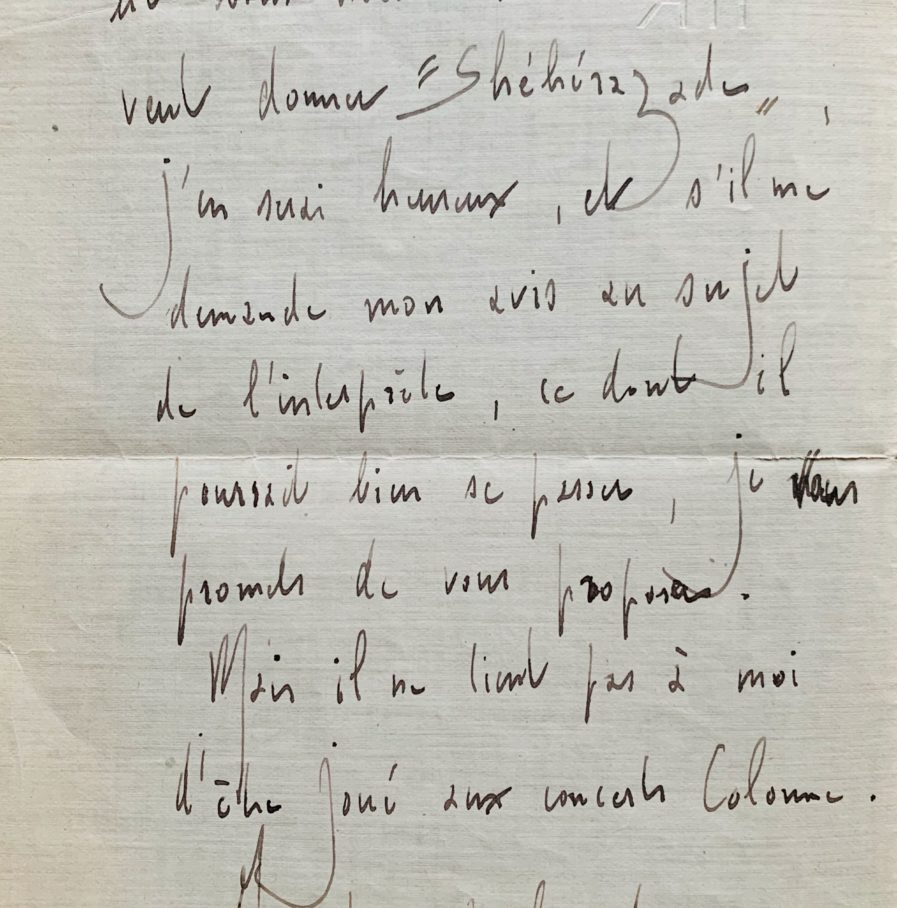 veut donner "Shéhérazade",
j'en serai heureux, et s'il me
demande mon avis au sujet
de l'interprète, ce dont il
pourrait bien se passer, je vous
promets de vous proposer.
Mais il ne tient pas à moi
d'être joué aux concerts Colonne.